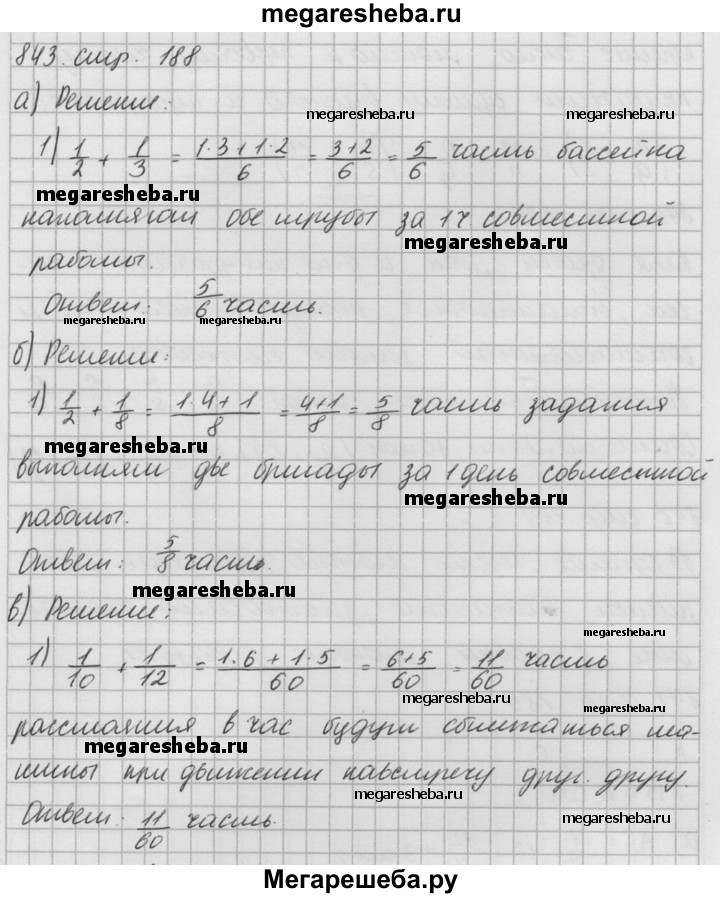 megaresheba.ru
843. стр. 188
а) Решение:
megaresheba.ru megaresheba.ru
1) 1/2 + 1/3 = (1·3+1·2)/6 = (3+2)/6 = 5/6 часть бассейна
megaresheba.ru
наполнят обе трубы за 1 ч совместной
megaresheba.ru
работы.
Ответ: 5/6 часть.
megaresheba.ru megaresheba.ru
б) Решение:
1) 1/2 + 1/8 = (1·4+1)/8 = (4+1)/8 = 5/8 часть задания
megaresheba.ru
выполнят две бригады за 1 день совместной
megaresheba.ru
работы.
Ответ: 5/8 часть.
megaresheba.ru
в) Решение:
megaresheba.ru
1) 1/10 + 1/12 = (1·6+1·5)/60 = (6+5)/60 = 11/60 часть
megaresheba.ru
megaresheba.ru
расстояния в час будут сближаться ма-
megaresheba.ru
шины при движении навстречу друг другу.
megaresheba.ru
Ответ: 11/60 часть.
megaresheba.ru
Мегарешеба.ру